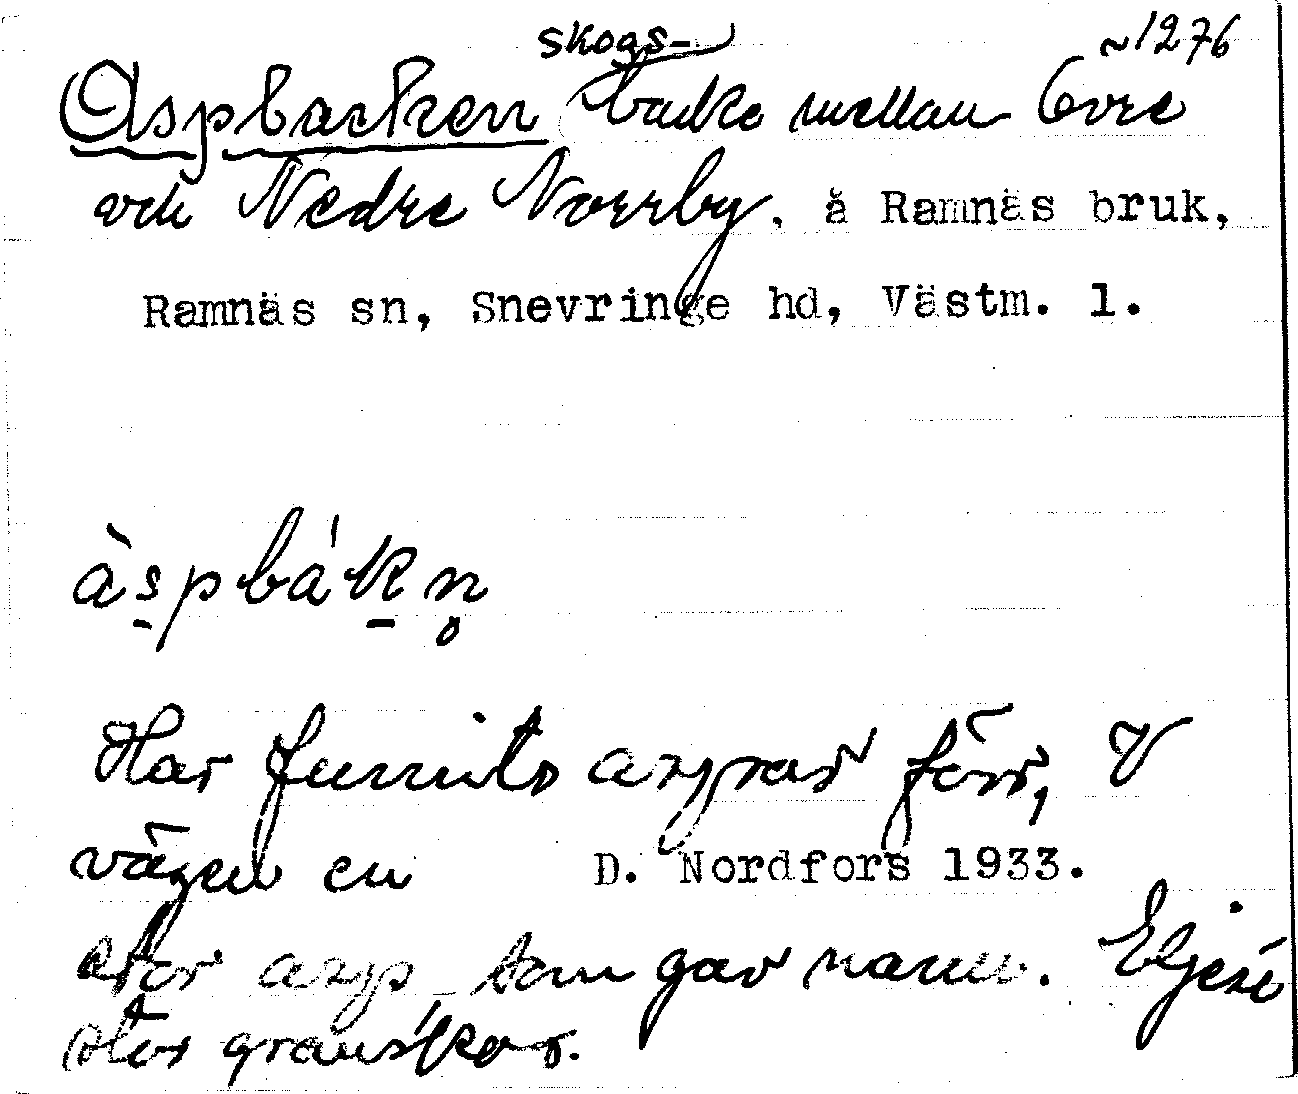 skogs- ~1276
Aspbacken backe mellan Övre
och Nedre Norrby, å Ramnäs bruk,
Ramnäs sn, Snevringe hd, Västm. l.
àspbákn̥
Har funnits aspar förr, V
vägen en D. Nordfors 1933.
stor asp som gav namn.
stor granskog.